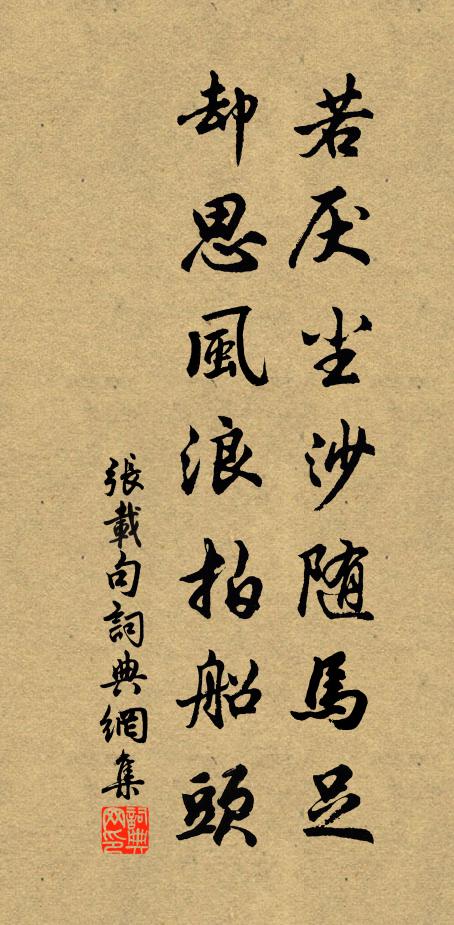 若厌尘沙随馬足
却思風浪拍船頭
張載句詞典網集
詞典网印